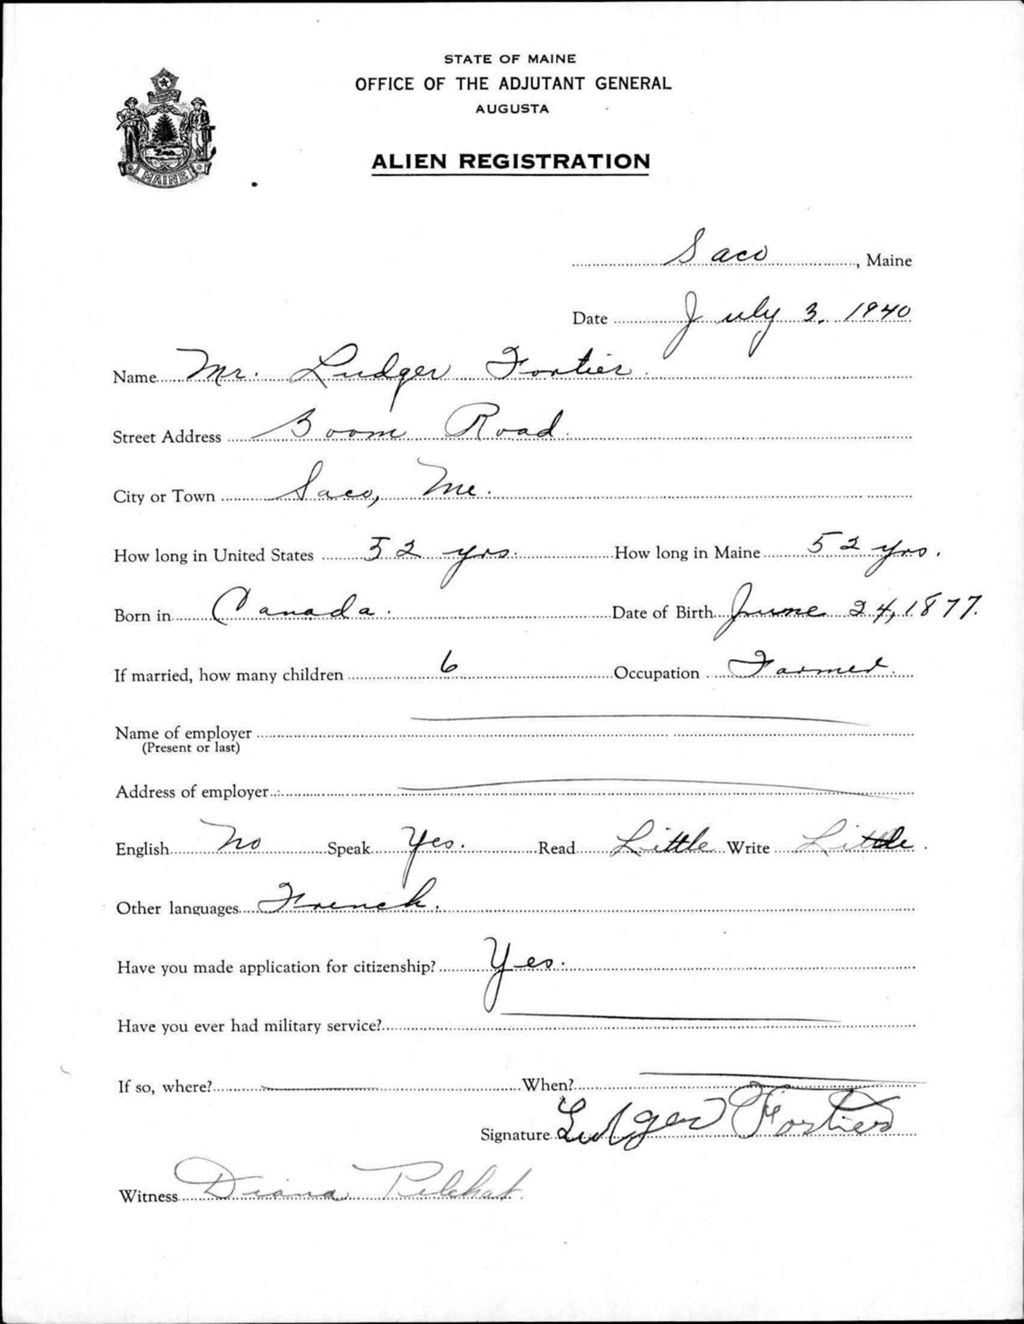 STATE OF MAINE
OFFICE OF THE ADJUTANT GENERAL
AUGUSTA
MAINE
ALIEN REGISTRATION
Saco, Maine
Date July 3, 1940
Name Mr. Ludger Fortier.
Street Address Boom Road.
City or Town Saco, Me.
How long in United States 52 yrs. How long in Maine 52 yrs.
Born in Canada. Date of Birth June 24, 1877.
If married, how many children 6 Occupation Farmer.
Name of employer
(Present or last)
Address of employer
English No Speak Yes. Read Little Write Little.
Other languages French.
Have you made application for citizenship? Yes.
Have you ever had military service?
If so, where? When?
Signature Ludger Fortier
Witness Diana